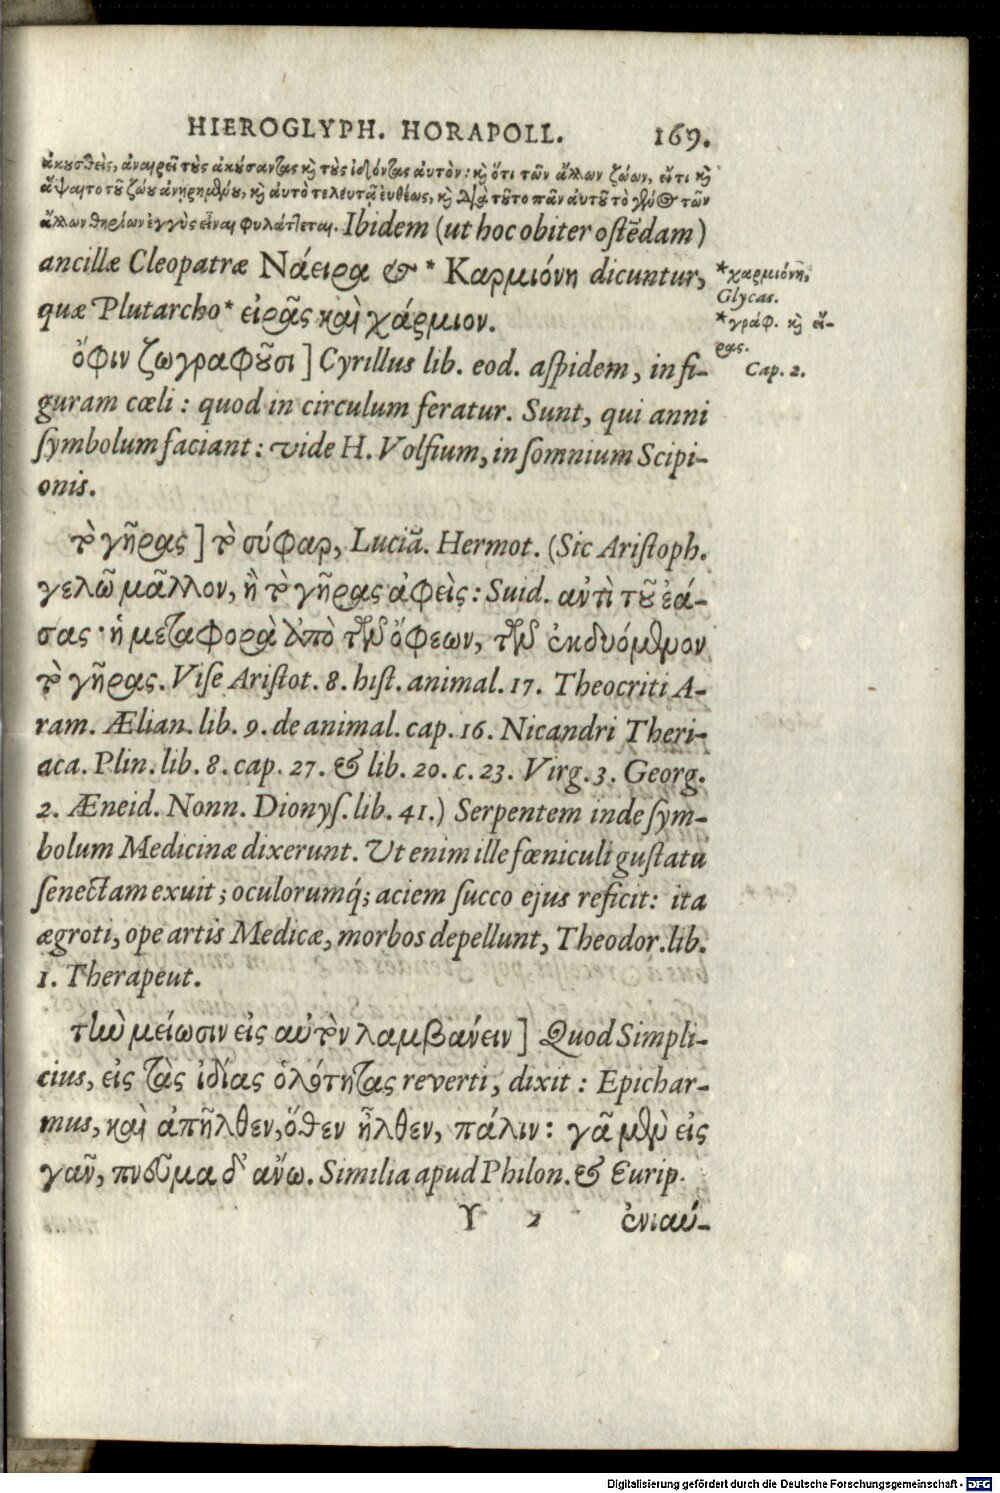 HIEROGLYPH. HORAPOLL. 169.
ἀκουσθεὶς, ἀναιρεῖ τοὺς ἀκούσαντας καὶ τοὺς ἰδόντας αὐτὸν: καὶ ὅτι τῶν ἄλλων ζώων, εἴ τι καὶ
ἅψαιτο τοῦ ζώου ἀνῃρημένου, καὶ αὐτὸ τελευτᾷ εὐθέως, καὶ διὰ τοῦτο πᾶν αὐτοῦ τὸ γένος τῶν
ἄλλων θηρίων ἐγγὺς εἶναι φυλάττεται. Ibidem (ut hoc obiter ostēdam)
ancillæ Cleopatræ Νάειρα & * Καρμιόνη dicuntur,
quæ Plutarcho* εἰρᾶς καὶ χάρμιον.
*χαρμιόνη,
Glycas.
*γράφ. καὶ εἴ-
ρας.
ὄφιν ζωγραφοῦσι] Cyrillus lib. eod. aspidem, in fi-
Cap. 2.
guram cœli: quod in circulum feratur. Sunt, qui anni
symbolum faciant: vide H. Volfium, in somnium Scipi-
onis.
τὸ γῆρας] τὸ σύφαρ, Luciā. Hermot. (Sic Aristoph.
γελῶ μᾶλλον, ἢ τὸ γῆρας ἀφεὶς: Suid. ἀντὶ τοῦ ἐά-
σας· ἡ μεταφορὰ ἀπὸ τῶν ὄφεων, τῶν ἐκδυόμενον
τὸ γῆρας. Vise Aristot. 8. hist. animal. 17. Theocriti A-
ram. Ælian. lib. 9. de animal. cap. 16. Nicandri Theri-
aca. Plin. lib. 8. cap. 27. & lib. 20. c. 23. Virg. 3. Georg.
2. Æneid. Nonn. Dionys. lib. 41.) Serpentem inde sym-
bolum Medicinæ dixerunt. Ut enim ille fœniculi gustatu
senectam exuit; oculorumq́; aciem succo ejus reficit: ita
ægroti, ope artis Medicæ, morbos depellunt, Theodor. lib.
1. Therapeut.
τὴν μείωσιν εἰς αὐτὸν λαμβάνειν] Quod Simpli-
cius, εἰς τὰς ἰδίας ὁλότητας reverti, dixit: Epichar-
mus, καὶ ἀπῆλθεν, ὅθεν ἦλθεν, πάλιν: γᾶ μὲν εἰς
γαῦ, πνεῦμα δ' ἄνω. Similia apud Philon. & Eurip.
Y 2 ἐνιαύ-
Digitalisierung gefördert durch die Deutsche Forschungsgemeinschaft - DFG